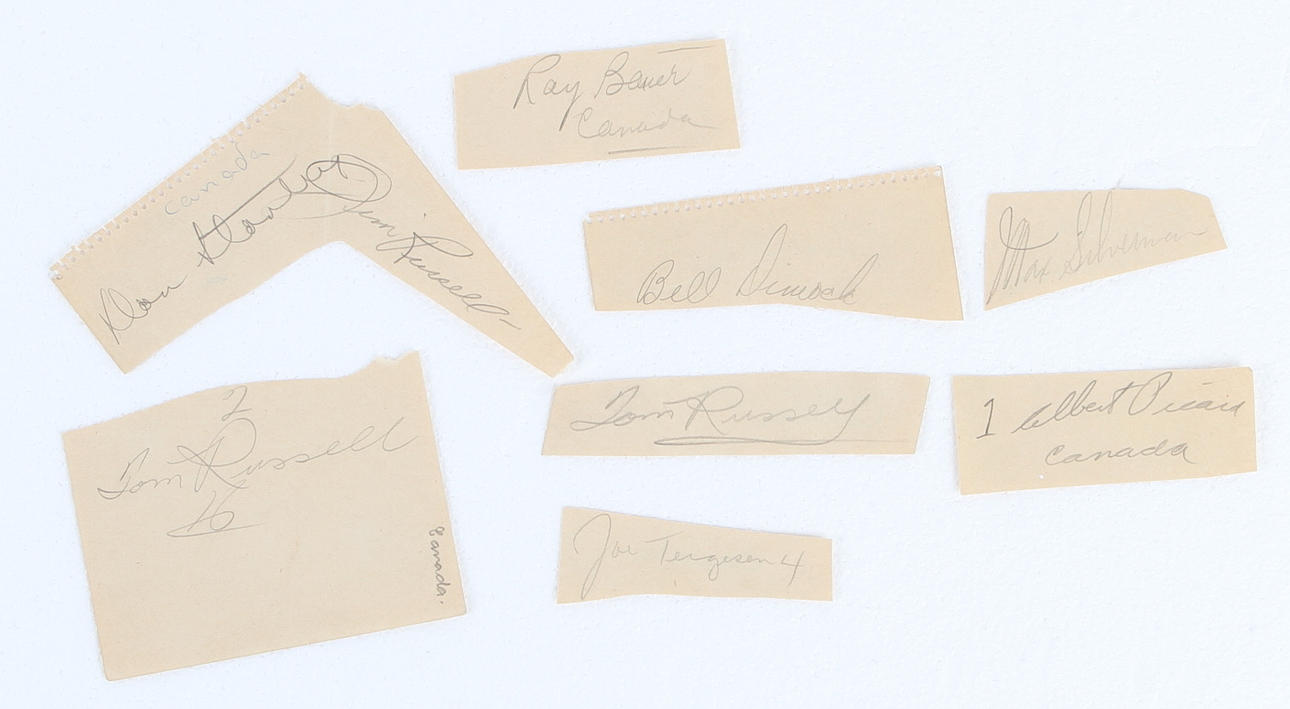 Ray Bauer
Canada
canada
Don Stankat
Jim Russell
Bill Dimock
Max Silverman
2
Tom Russell
16
Canada.
Tom Russell
1 Albert Picard
Canada
Joe Tergesen 4